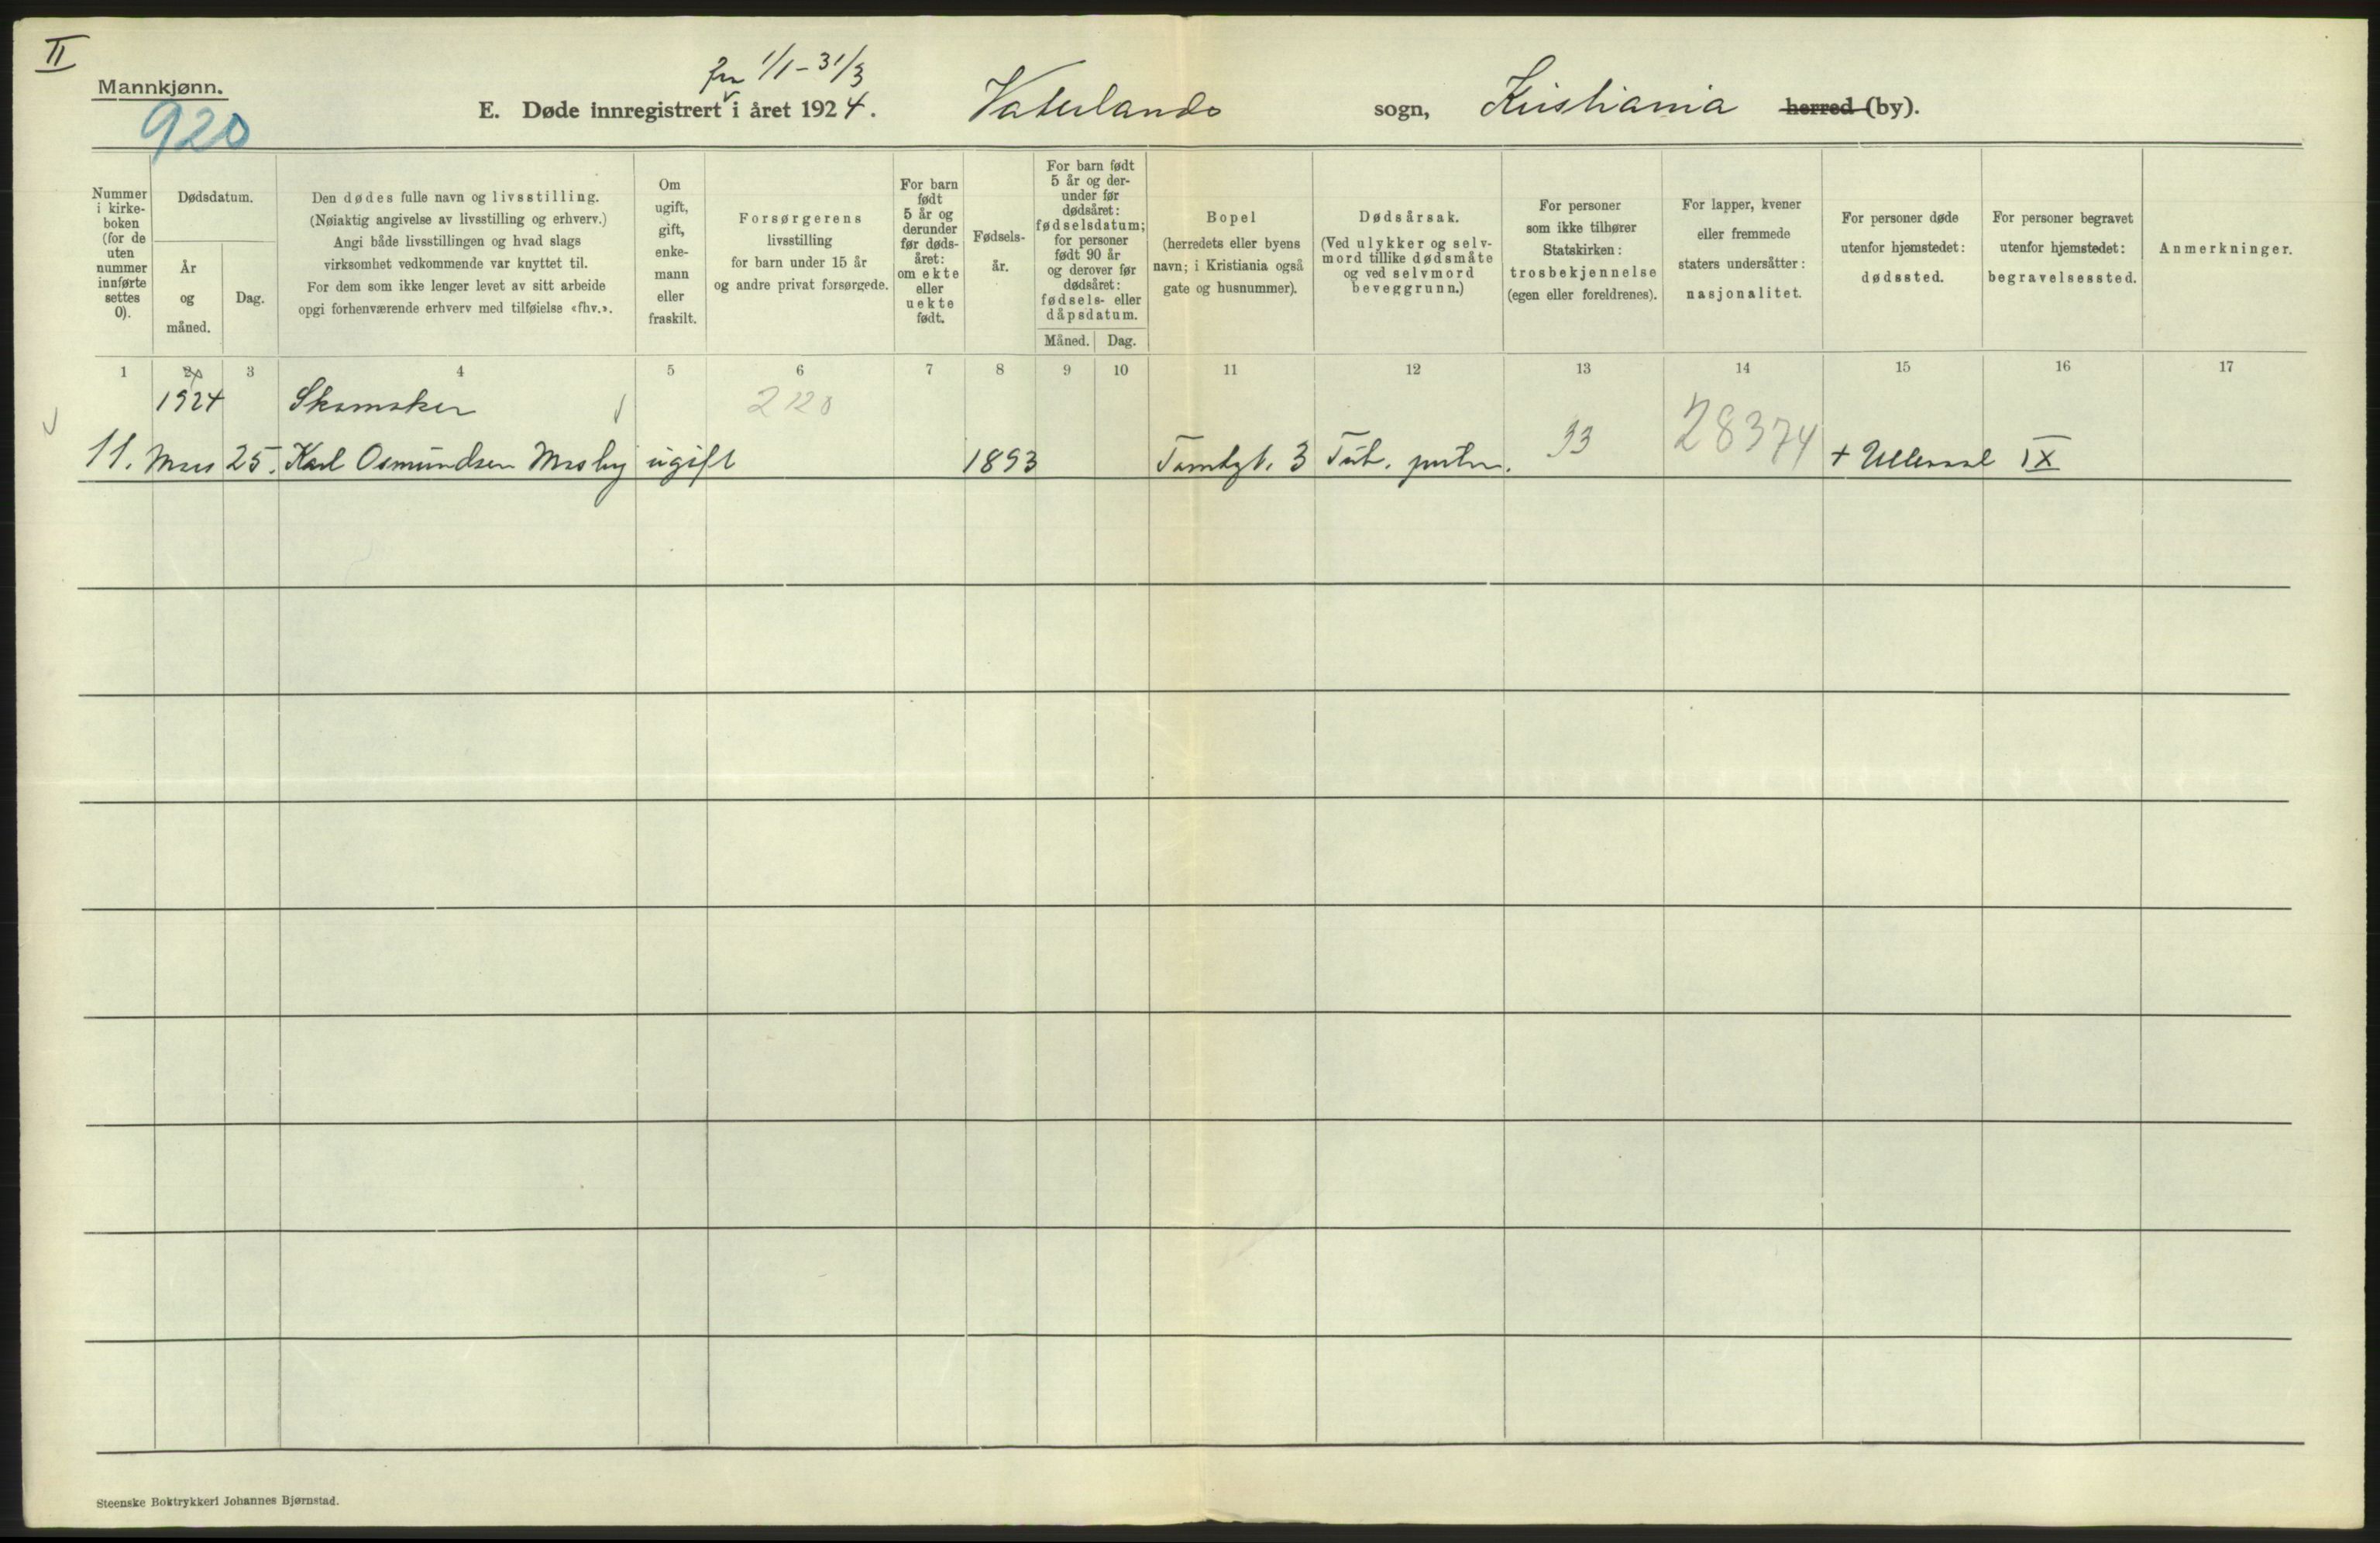 II
Mannkjønn.
920
fra 1/1 - 31/3
E. Døde innregistrert i året 1924. Vaterlands sogn, Kristiania herred (by).
Nummer i kirke- boken (for de uten nummer innførte settes 0).
Dødsdatum.
År og måned.
Dag.
Den dødes fulle navn og livsstilling.
(Nøiaktig angivelse av livsstilling og erhverv.)
Angi både livsstillingen og hvad slags
virksomhet vedkommende var knyttet til.
For dem som ikke lenger levet av sitt arbeide
opgi forhenværende erhverv med tilføielse «fhv.».
Om ugift, gift, enke- mann eller fraskilt.
Forsørgerens
livsstilling
for barn under 15 år
og andre privat forsørgede.
For barn født 5 år og derunder før døds- året: om ekte eller uekte født.
Fødsels- år.
For barn født 5 år og der- under før dødsåret: fødselsdatum; for personer født 90 år og derover før dødsåret: fødsels- eller dåpsdatum.
Måned. Dag.
Bopel
(herredets eller byens
navn; i Kristiania også
gate og husnummer).
Dødsårsak.
(Ved ulykker og selv-
mord tillike dødsmåte
og ved selvmord
beveggrunn.)
For personer
som ikke tilhører
Statskirken:
trosbekjennelse
(egen eller foreldrenes).
For lapper, kvener
eller fremmede
staters undersåtter:
nasjonalitet.
For personer døde
utenfor hjemstedet:
dødssted.
For personer begravet
utenfor hjemstedet:
begravelsessted.
Anmerkninger.
1 2 3 4 5 6 7 8 9 10 11 12 13 14 15 16 17
1924 Skomaker 220
11. Mars 25. Karl Osmundsen Mosby ugift 1893 Tomtegt. 3 Tub. pulm. 33 28374 + Ullevaal IX
Steenske Boktrykkeri Johannes Bjørnstad.